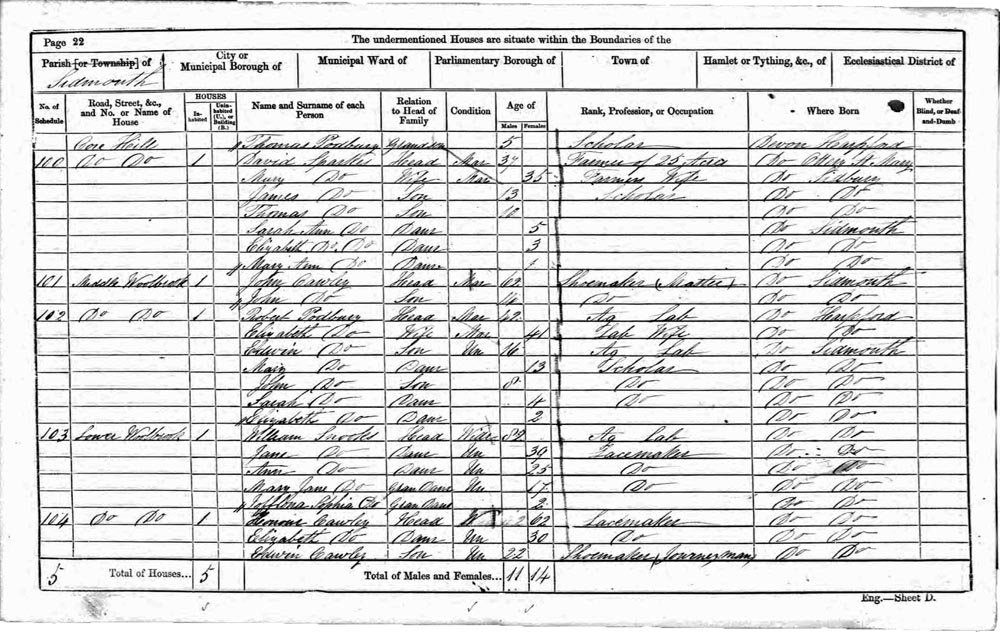 Page 22
The undermentioned Houses are situate within the Boundaries of the
Parish [or Township] of
Sidmouth
City or Municipal Borough of
Municipal Ward of
Parliamentary Borough of
Town of
Hamlet or Tything, &c., of
Ecclesiastical District of
No. of Schedule
Road, Street, &c., and No. or Name of House
HOUSES
Inhabited
Uninhabited (U.), or Building (B.)
Name and Surname of each Person
Relation to Head of Family
Condition
Age of
Males
Females
Rank, Profession, or Occupation
Where Born
Whether Blind, or Deaf-and-Dumb
Core Hills Thomas Podbury Grandson 5 Scholar Devon Harpford
100 Do Do 1 David Head Mar 37 Farmer of 25 Acres Do Ottery St. Mary
Mary Do Wife Mar 35 Farmers Wife Do Sidbury
James Do Son 13 Scholar Do Do
Thomas Do Son 10 Do Do
Sarah Ann Do Daur 5 Do Sidmouth
Elizabeth Do Daur 3 Do Do
Mary Ann Do Daur Do Do
101 Middle Woolbrook 1 John Cawley Head Mar 62 Shoemaker (Master) Do Sidmouth
John Do Son Do Do Do
102 Do Do 1 Robert Podbury Head Mar 42 Ag Lab Do Harpford
Elizabeth Do Wife Mar 41 Lab Wife Do Do
Edwin Do Son Un 16 Ag Lab Do Sidmouth
Mary Do Daur 13 Scholar Do Do
John Do Son 8 Do Do Do
Sarah Do Daur 4 Do Do Do
Elizabeth Do Daur 2 Do Do
103 Lower Woolbrook 1 William Snooks Head 82 Ag Lab Do Do
Jane Do Daur Un 30 Lacemaker Do Do
Ann Do Daur Un 25 Do Do Do
Mary Jane Do Gran Daur Un 17 Do Do Do
Sophia Do Gran Daur 2 Do Do
104 Do Do 1 Cawley Head W 62 Lacemaker Do Do
Elizabeth Do Daur Un 30 Do Do Do
Edwin Cawley Son Un 22 Shoemaker (Journeyman) Do Do
5 Total of Houses... 5 Total of Males and Females... 11 14
Eng.—Sheet D.